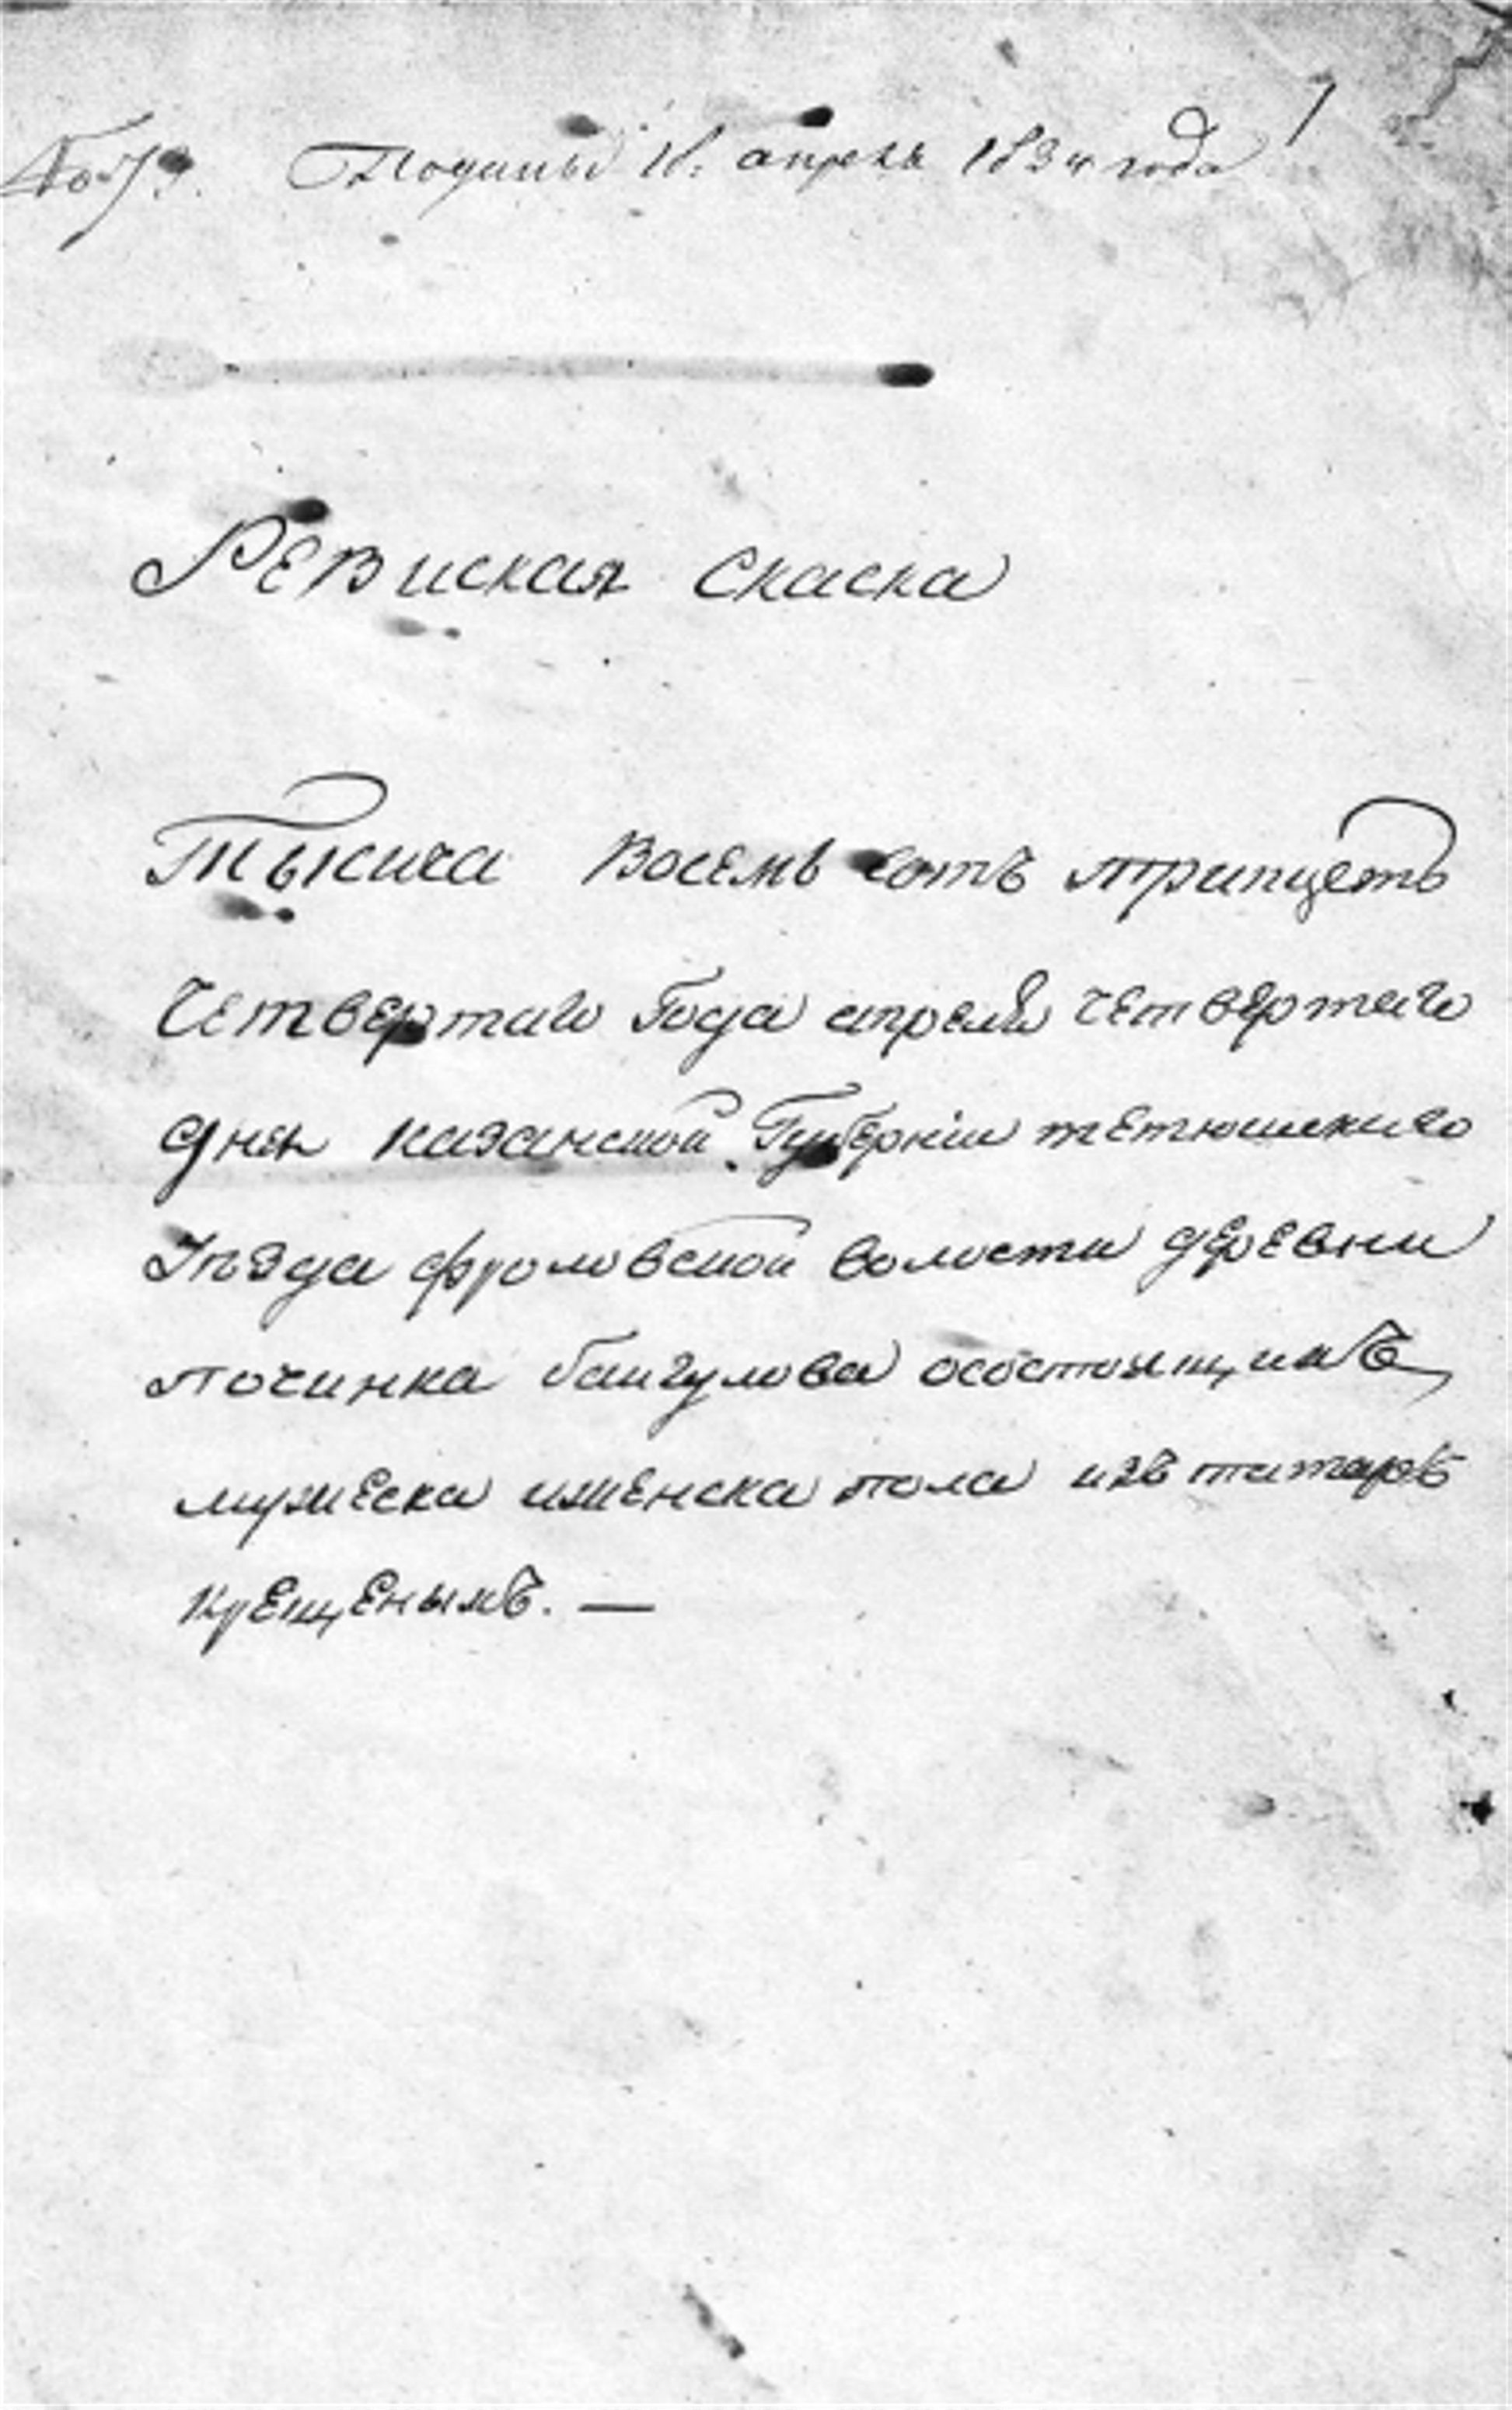 № 79. Поданы 18. апреля 1834 года 1
Ревиская скаска
Тысеча восемь сотъ трицеть
четвертаго Года апреля четвертаго
дня казанской Губерніи тетюшскаго
Уѣзда фроловской волости деревни
починка баигулова осостоящихъ
мужеска иженска пола изъ татаръ
крещенымъ. —